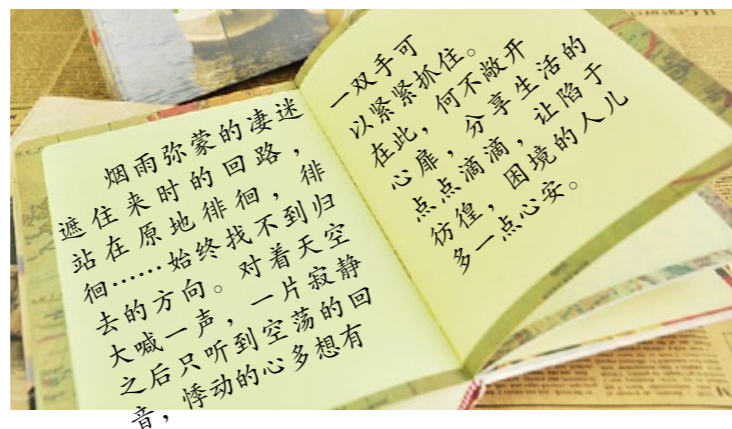 烟雨弥蒙的凄迷
遮住来时的回路，
站在原地徘徊，徘
徊……始终找不到归
去的方向。对着天空
大喊一声，一片寂静
之后只听到空荡的回
音，悸动的心多想有
一双手可
以紧紧抓住。
在此，何不敞开
心扉，分享生活的
点点滴滴，让陷于
彷徨，困境的人儿
多一点心安。